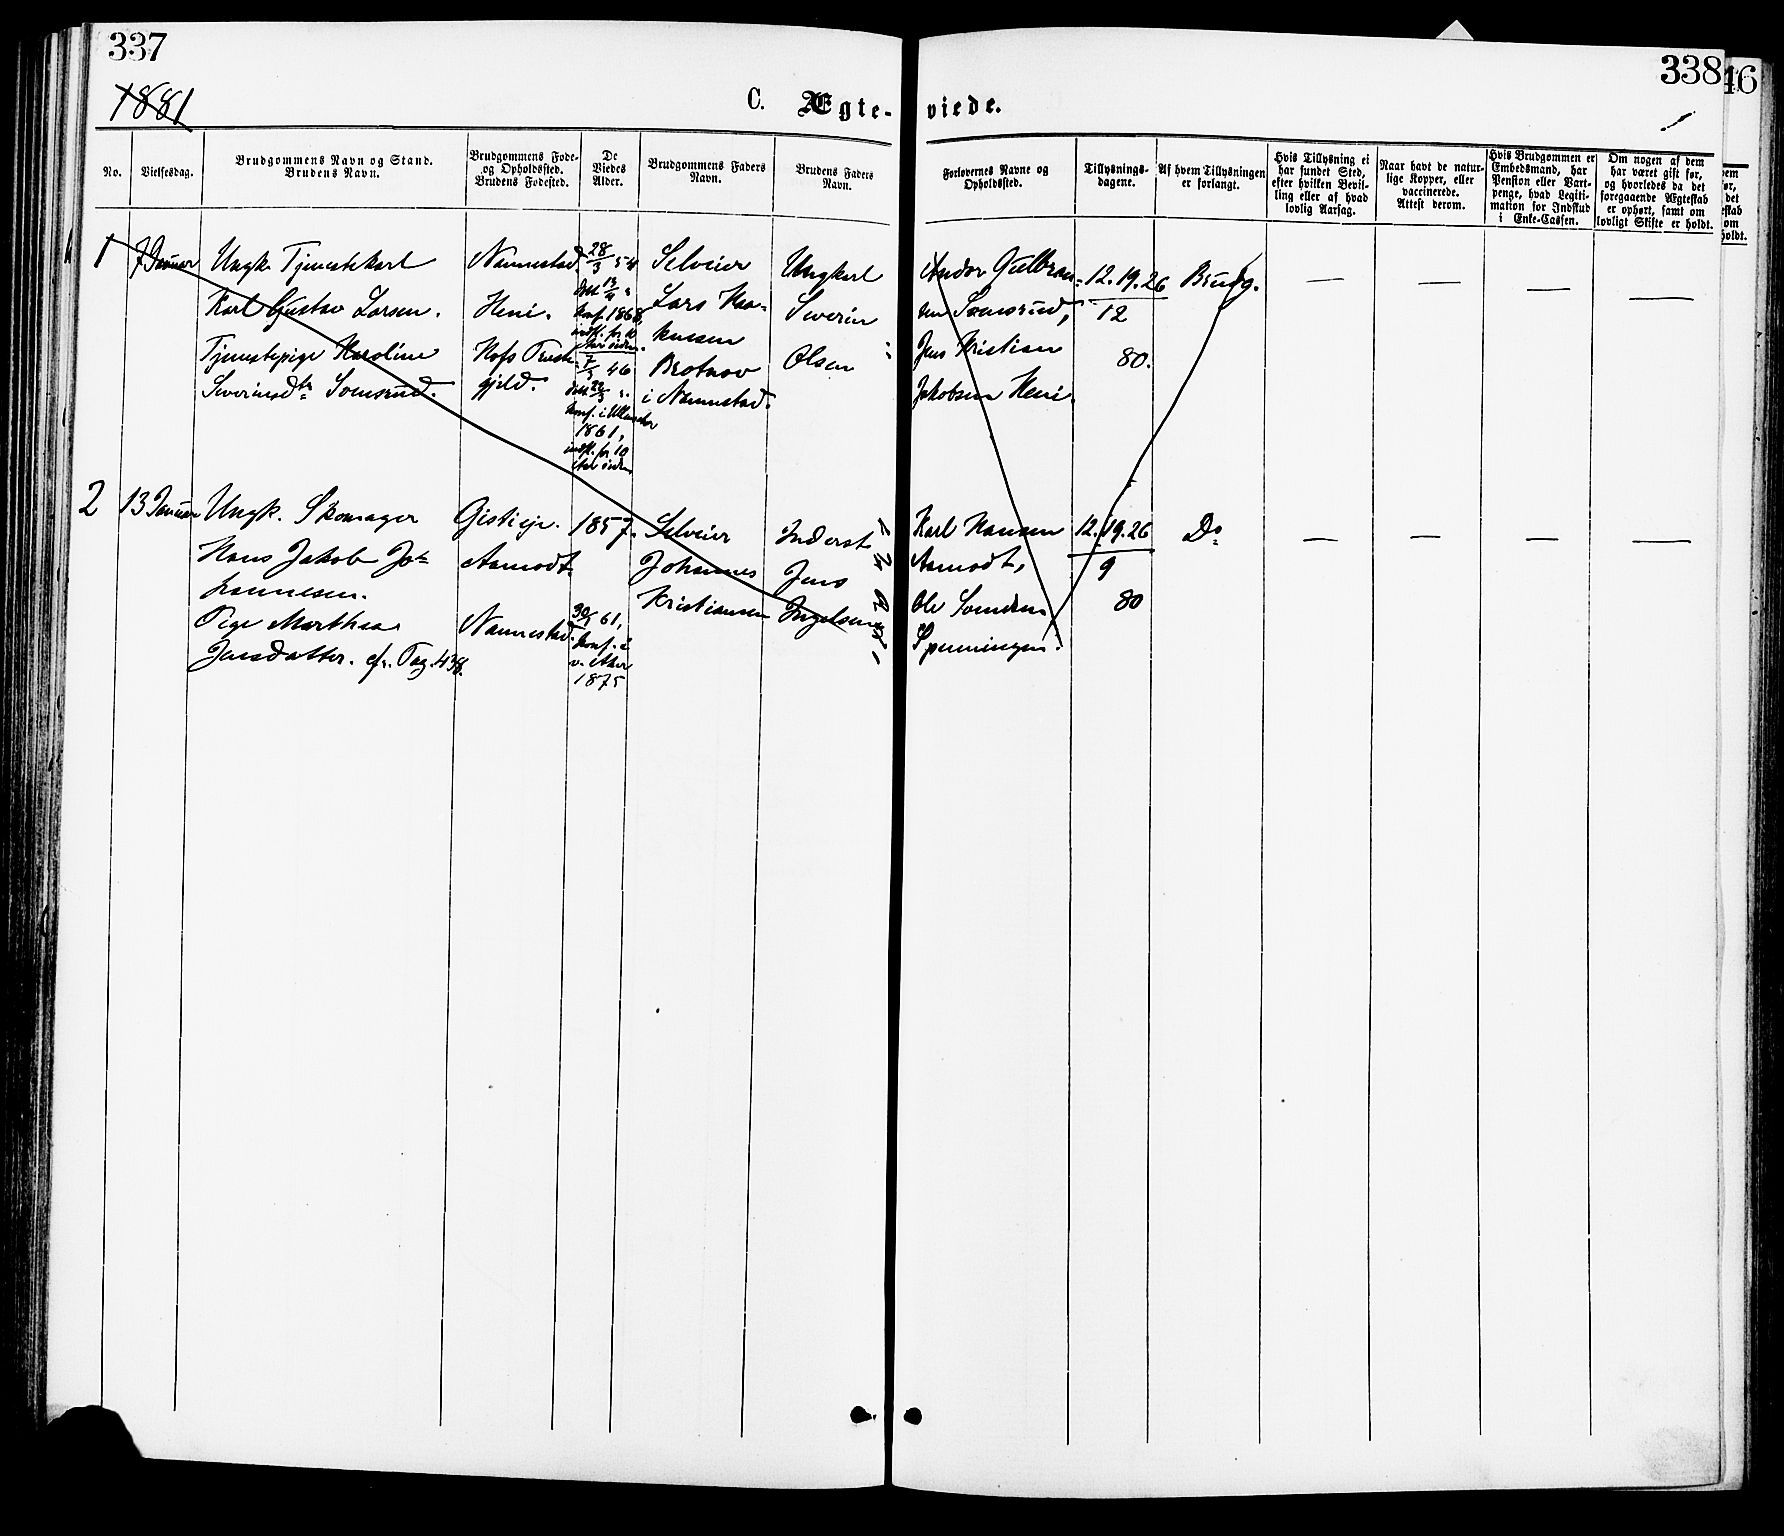 337
338
46
1881
C. Ægte-viede.
No.
Vielsesdag.
Brudgommens Navn og Stand.
Brudens Navn.
Brudgommens Føde-
og Opholdssted.
Brudens Fødested.
De
Viedes
Alder.
Brudgommens Faders
Navn.
Brudens Faders
Navn.
Forlovernes Navne og
Opholdssted.
Tillysnings-
dagene.
Af hvem Tillysningen
er forlangt.
Hvis Tillysning ei
har fundet Sted,
efter hvilken Bevil-
ling eller af hvad
lovlig Aarsag.
Naar havt de natur-
lige Kopper, eller
vaccinerede.
Attest derom.
Hvis Brudgommen er
Embedsmand, har
Pension eller Vart-
penge, hvad Legiti-
mation for Indskud
i Enke-Cassen.
Om nogen af dem
har været gift før,
og hvorledes da det
foregaaende Ægteskab
er ophørt, samt om
lovligt Skifte er holdt.
1
7 Januar
Ungk. Tjenestekarl
Karl Gustav Larsen.
Tjenestepige Karoline
Severinsdtr
Nannestad.
Heni.
Hofs Præste-
gjeld.
28/3 54
døbt 17/4
konf. 1868,
indfl. for 10
Aar siden.
7/3 46
døbt 22/3
konf. i Ullensaker
1861,
indfl. for 10
Aar siden
Selveier
Lars Haa-
kensen
i Nannestad.
Ungkarl
Severin
Olsen
Andor Gulbran-
sen
Jens Kristian
Jakobsen Heni.
12.19.26
12
80.
Brudg.
— — — —
2
13 Januar
Ungk. Skomager
Hans Jakob Jo-
hannesen.
Pige Marthea
Jensdatter. cfr. Pag. 438.
Gistieje.
Aamodt.
Nannestad.
1857.
30/ 61,
konf. i
v. Aker
1875
Selveier
Johannes
Kristiansen
Inderst
Jens
Ingelsen
Karl Hansen
Aamodt,
Ole
12.19.26
9
80
Do
— — — —